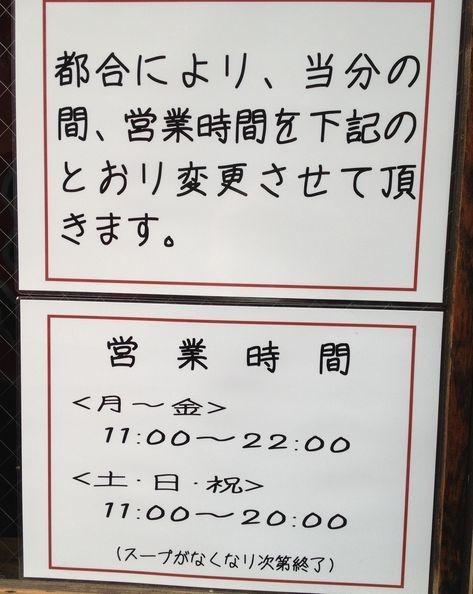 都合により、当分の
間、営業時間を下記の
とおり変更させて頂
きます。
営業時間
<月～金>
11:00～22:00
<土・日・祝>
11:00～20:00
(スープがなくなり次第終了)